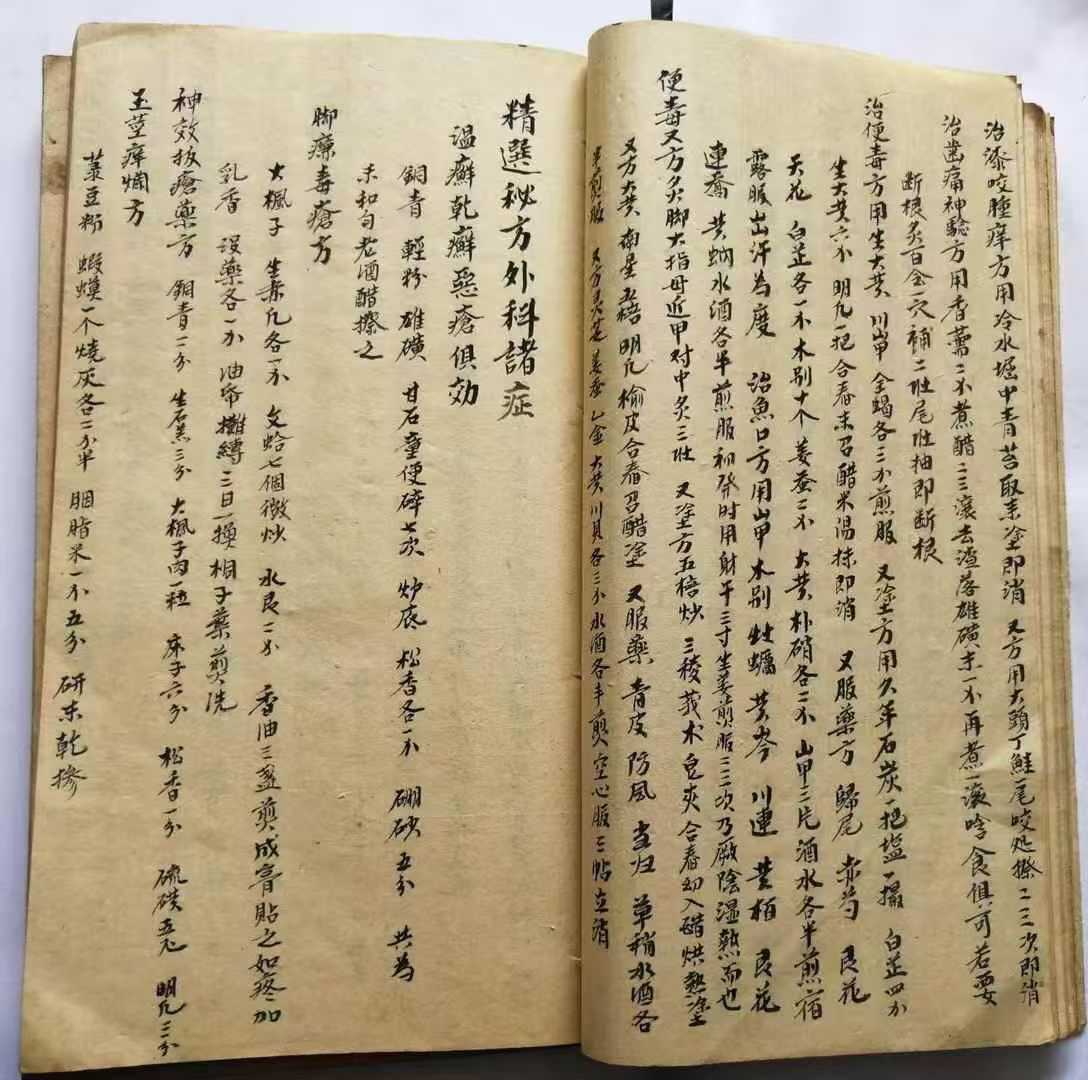 治漆咬腫庠方用冷水堀中青苔取來塗即消 又方用大頭丁鮭一尾咬処擦二三次即消
治齒痛神驗方用香薷二錢煮醋二三滾去渣落雄磺末一錢再煮一滾啥食俱可若要
断根灸百会一穴補二壯尾壯抽即断根
治便毒方用生大黄 川甲 全蝎各三錢煎服 又塗方用久年石炭一把塩一撮 白芷四錢
生大黄六錢 明凡一把合舂末召醋米湯抹即消 又服藥方 歸尾 赤芍 艮花
天花 白芷各一錢木别十个姜蚕二錢 大黄朴硝各二錢 山甲三片酒水各半煎宿
露服出汗為度 治魚口方用山甲木别牡蠣黄岑 川連 黄栢 艮花
連喬 黄蚋水酒各半煎服初発时用射干三寸生姜煎服二三次乃厥陰湿熱而也
便毒又方灸脚大指母近甲对中灸三壯 又塗方五棓炒 三稜莪术皂夾合舂幼入醋烘熱塗
又方大黄南星五棓明凡榆皮合舂召醋塗 又服藥 青皮防风 当归 草稍水酒各
半煎服 又方 姜蚕 乙金 大黄川貝各三錢水酒各半煎空心服三帖立消
精選秘方外科諸症
温癬乾癬惡瘡俱効
銅青 輕粉 雄磺 甘石童便碎七次 炉底 松香各一錢 硼砂 五分 共為
末和勻老酒醋擦之
脚臁毒瘡方
大楓子 生柒凡各一錢 文蛤七個微炒 水艮二錢 香油三盏煎成膏貼之如疼加
乳香 沒藥各一錢 油帋攤縛三日一換 桕子葉煎洗
神效拔瘡藥方 銅青一分 生石羔三分 大楓子肉一粒 床子六分 松香一分 硫磺五厘 明凡二分
玉莖痒爛方
菉豆粉 蝦蟆一个燒灰各二錢半 胭脂米一錢五分 研末乾摻